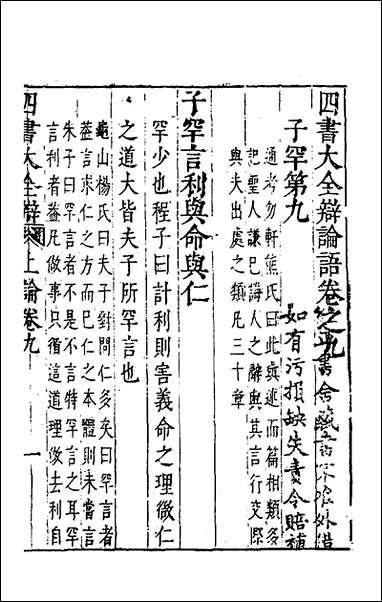 四書大全辯論語卷之九
書舍藏書不許外借
如有污損缺失責令賠補
子罕第九
通考勿軒熊氏曰此與述而篇相類多
記聖人謙己誨人之辭與其言行交際
與夫出處之類凡三十章
子罕言利與命與仁
罕少也程子曰計利則害義命之理微仁
之道大皆夫子所罕言也
龜山楊氏曰夫子對問仁多矣曰罕言者
蓋言求仁之方而已仁之本體則未嘗言
朱子曰罕言者不是不言特罕言之耳罕
言利者蓋凡做事只循這道理做去利自
四書大全辯
上論卷九
一